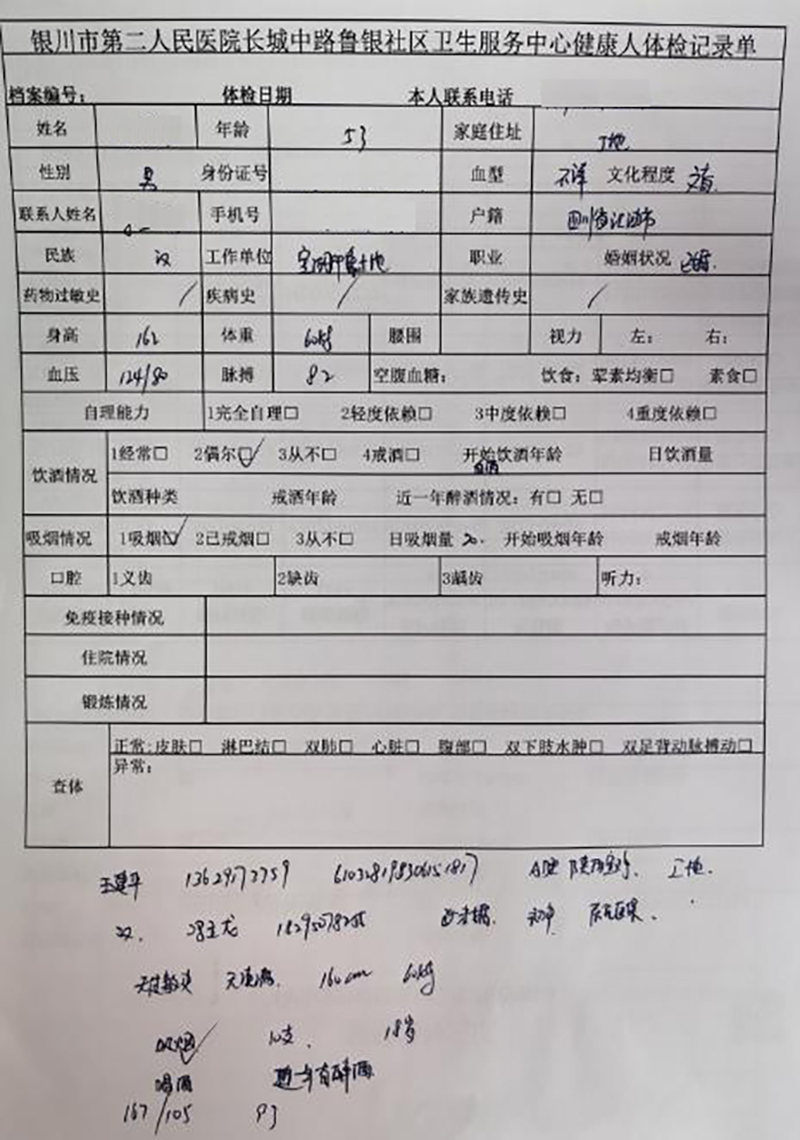 银川市第二人民医院长城中路鲁银社区卫生服务中心健康人体检记录单
档案编号： 体检日期 本人联系电话
姓名 年龄 53 家庭住址 工地
性别 男 身份证号 血型 不详 文化程度
联系人姓名 手机号 户籍 四川省
民族 汉 工作单位 职业 婚姻状况 已婚
药物过敏史 / 疾病史 / 家族遗传史 /
身高 162 体重 60kg 腰围 视力 左： 右：
血压 124/80 脉搏 82 空腹血糖： 饮食：荤素均衡□ 素食□
自理能力 1完全自理□ 2轻度依赖□ 3中度依赖□ 4重度依赖□
饮酒情况 1经常□ 2偶尔☑ 3从不□ 4戒酒□ 开始饮酒年龄 日饮酒量
饮酒种类 白酒 戒酒年龄 近一年醉酒情况：有□ 无□
吸烟情况 1吸烟☑ 2已戒烟□ 3从不□ 日吸烟量 20. 开始吸烟年龄 戒烟年龄
口腔 1义齿 2缺齿 3龋齿 听力：
免疫接种情况
住院情况
锻炼情况
查体 正常：皮肤□ 淋巴结□ 双肺□ 心脏□ 腹部□ 双下肢水肿□ 双足背动脉搏动□
异常：
王建平 工地.
汉.
160cm 60kg
吸烟✓ 10支. 18岁
喝酒 近一年有醉酒
167/105 93